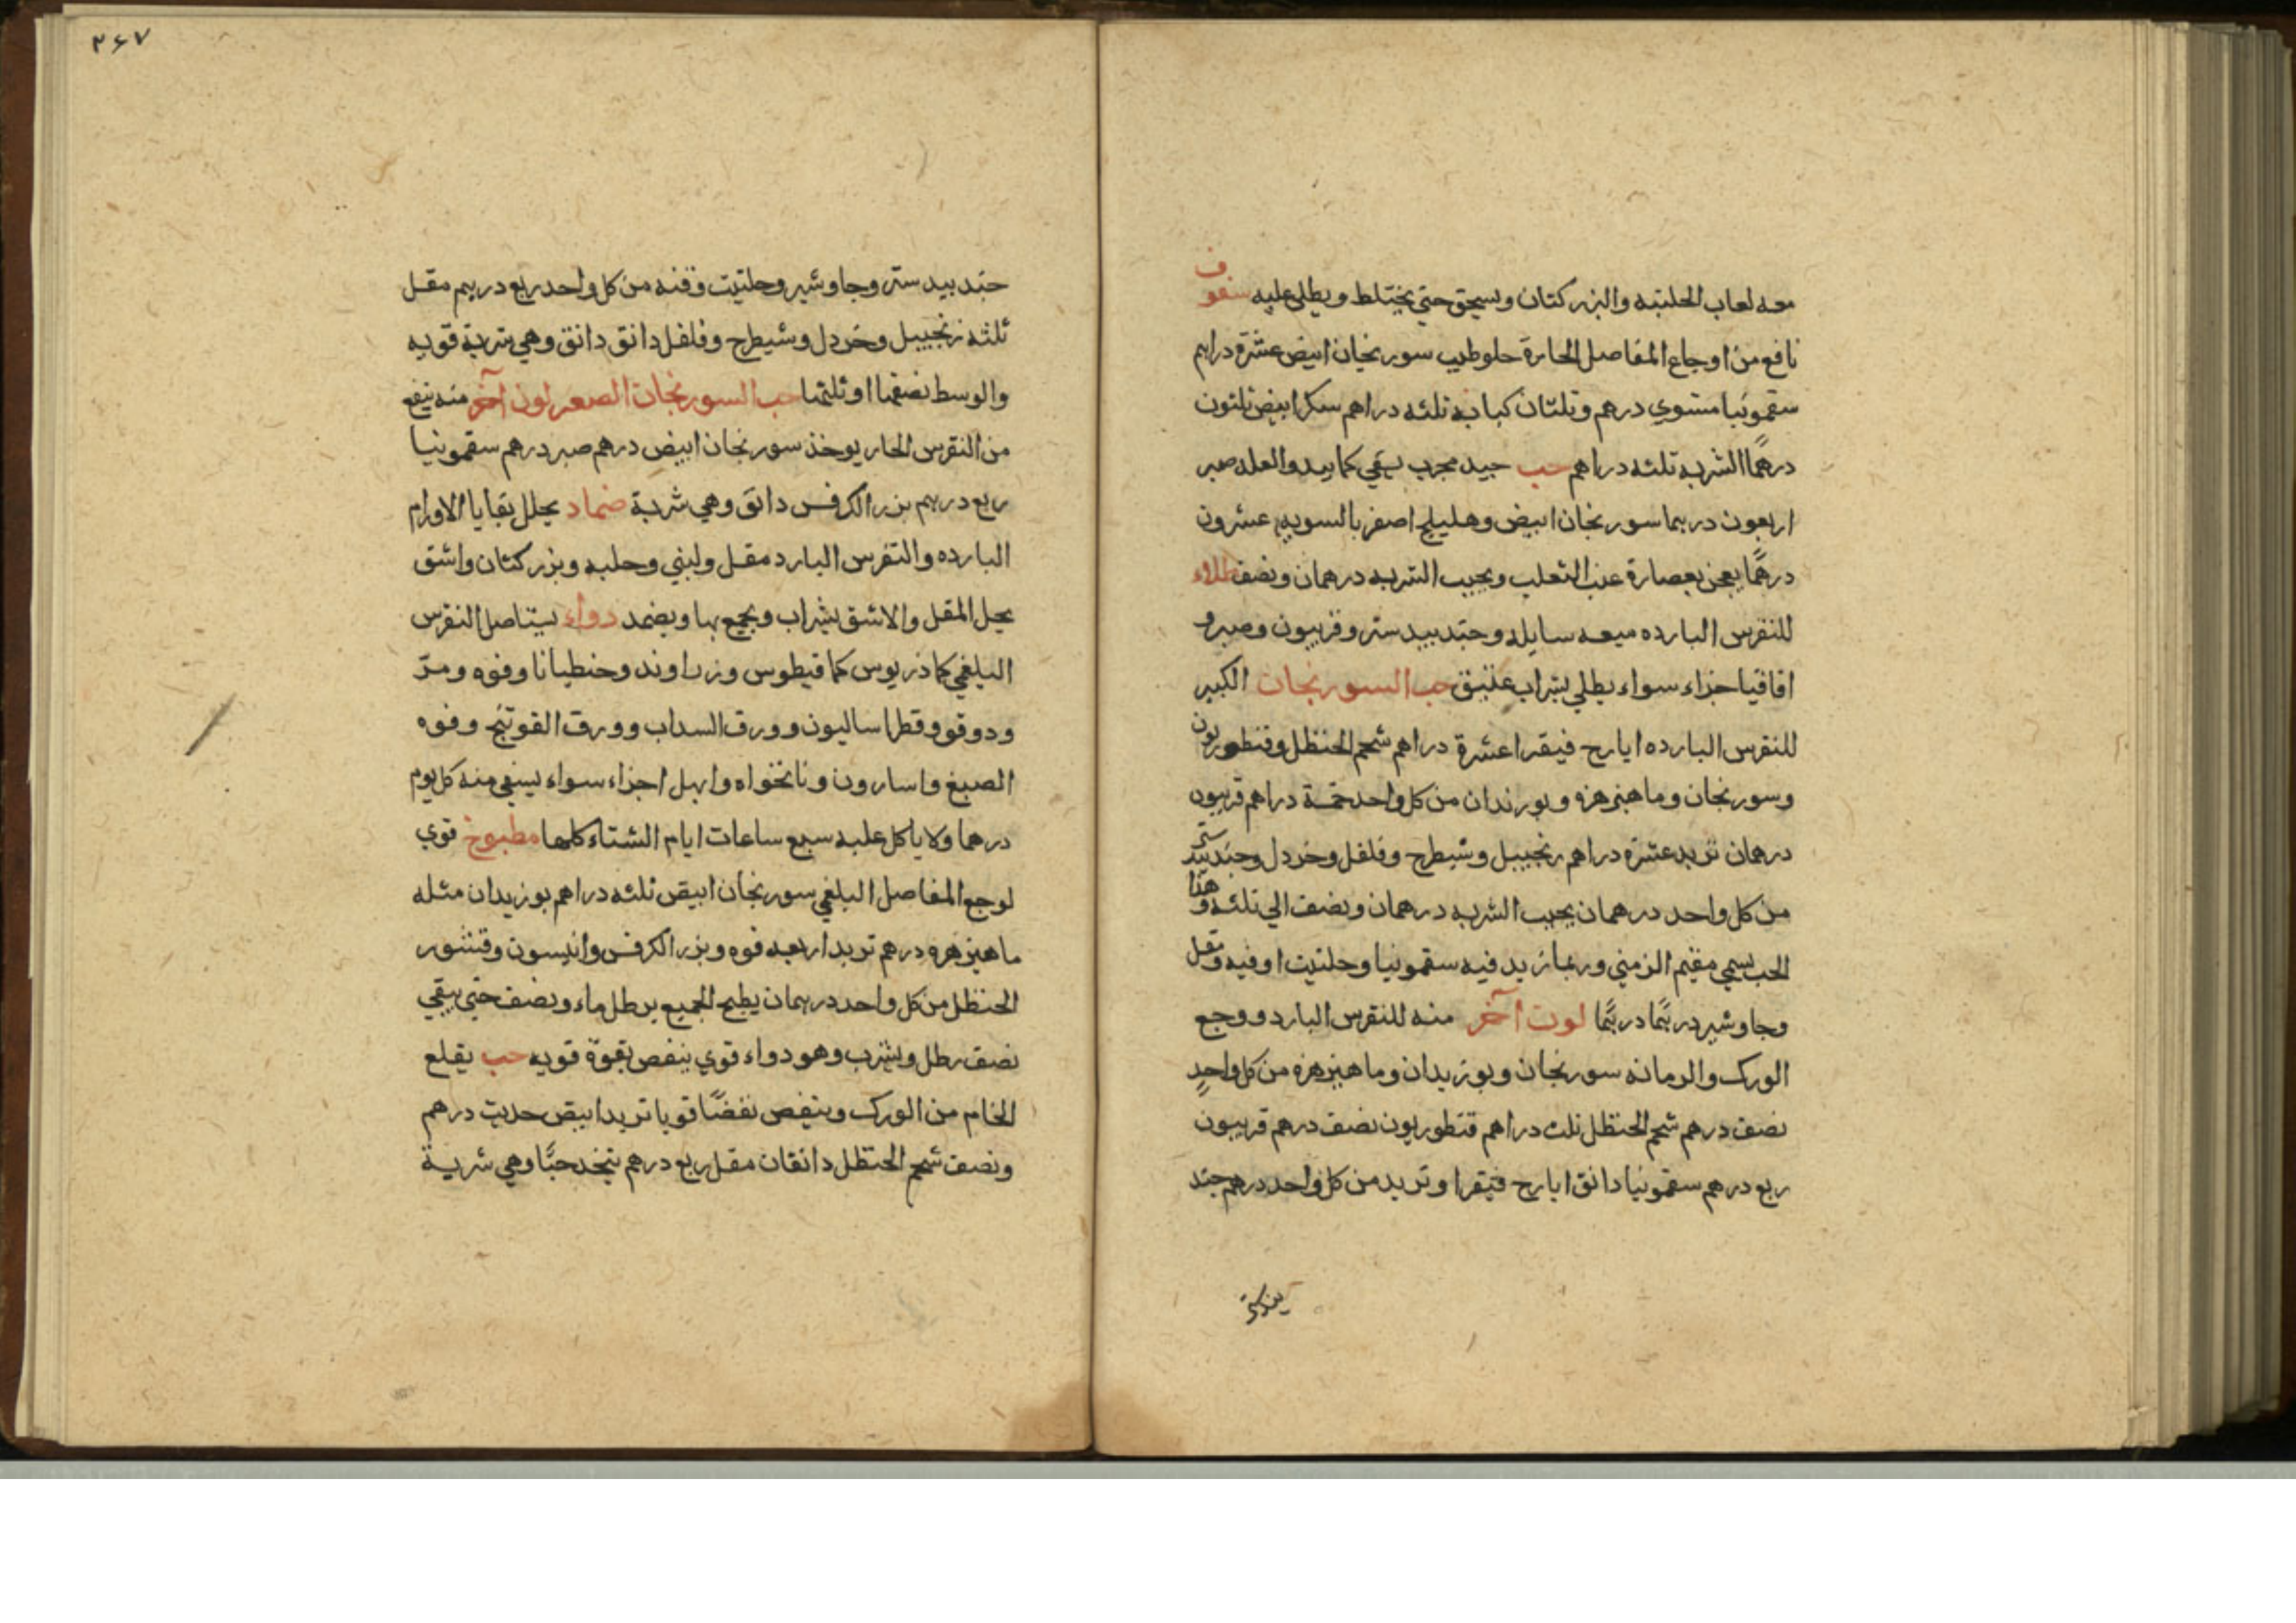 معه لعاب الحلتبه والبزر كتان ويسحق حتي يختلط ويطلي عليه سفوف
نافع من اوجاع المفاصل الحارة حلو طيب سورنجان ابيض عشرة دراهم
سقمونيا مشوي درهم وثلثان كبابه ثلثه دراهم سكر ابيض ثلثون
درهمًا الشربه ثلثه دراهم حب جيد مجرب يبقي كما بيد والعله صبر
اربعون درهما سورنجان ابيض وهليلج اصفر بالسويه عشرون
درهمًا يعجن بعصارة عنب الثعلب ويحبب الشربه درهمان ونصف طلاء
للنقرس البارده ميعه سايله وجندبيدستر وفربيون وصبر و
اقاقيا اجزاء سواء يطلي بشراب عتيق حب السورنجان الكبير
للنقرس البارده ايارح فيقرا عشرة دراهم شحم الحنظل وقنطوريون
وسورنجان وماهيزهزه وبورندان من كل واحد خمسة دراهم فربيون
درهمان تربد عشرة دراهم زنجبيل وشيطرح وفلفل وخردل وجندبيدستر
من كل واحد درهمان يحبب الشربه درهمان ونصف الي ثلثه وهذا
الحب يسمي مقيم الزمني وربما زيد فيه سقمونيا وحلتيت اوفيه ومقل
وجاوشير درهمًا درهمًا لون آخر منه للنقرس البارد ووجع
الورك والزمانه سورنجان وبوزيدان وماهيزهزه من كل واحدٍ
نصف درهم شحم الحنظل ثلث دراهم قنطوريون نصف درهم فربيون
ربع درهم سقمونيا دانق ايارح فيقرا وتربد من كل واحد درهم جند
٣٤٧
جندبيدستر وجاوشير وحلتيت وقنه من كل واحد ربع درهم مقل
ثلثه زنجبيل وخردل وشيطرح وفلفل دانق دانق وهي شربة قويه
والوسط نصفها او ثلثها حب السورنجان الصغر لون آخر منه ينفع
من النقرس الحار يوخذ سورنجان ابيض درهم صبر درهم سقمونيا
ربع درهم بزر الكرفس دانق وهي شربة ضماد يحلل بقايا الاورام
البارده والنقرس البارد مقل ولبني وحلبه وبزر كتان واشق
يحل المقل والاشق بشراب ويجمع بها ويضمد دواء يستاصل النقرس
البلغمي كماذريوس كمافيطوس وزراوند وجنطيانا وفوه ومرّ
ودوقو وقطراساليون وورق السداب وورق الفوتنج وفوه
الصبغ واسارون ونانخواه وابهل اجزاء سواء يسقي منه كل يوم
درهما ولا ياكل عليه سبع ساعات ايام الشتاء كلها مطبوخ قوي
لوجع المفاصل البلغمي سورنجان ابيض ثلثه دراهم بوزيدان مثله
ماهيزهره درهم تربد اربعه فوه وبزر الكرفس وانيسون وقنشور
الحنظل من كل واحد درهمان يطبخ الجميع برطل ماء ونصف حتي يبقي
نصف رطل ويشرب وهو دواء قوي ينفض بقوة قويه حب يقلع
الخام من الورك وينفض نفضًا قويا تربد ابيض حديث درهم
ونصف شحم الحنظل دانقان مقل ربع درهم يتخذ حبًا وهي شربة